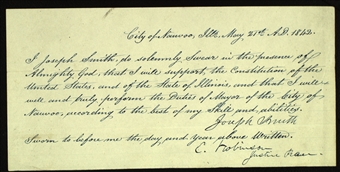 City of Nauvoo, Ills. May 21st A.D. 1842.
I Joseph Smith, do solemnly Swear in the presence of
Almighty God, that I will support, the Constitution of the
United States, and of the State of Illinois, and that I will
well and truly perform the Duties of Mayor of the City of
Nauvoo, according to the best of my Skill and, abilities.
Joseph Smith
Sworn to before me the day, and year above Written.
C. Robison
Justice Peace